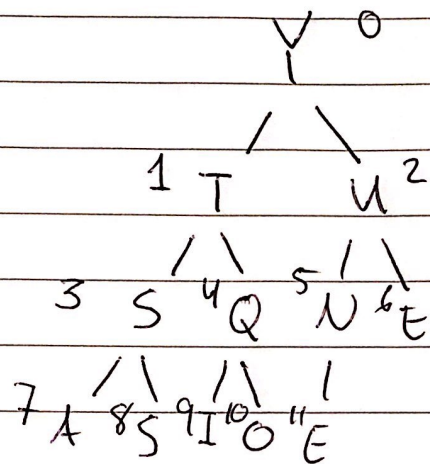 Y 0
1 T U 2
3 S 4 Q 5 N 6 E
7 A 8 S 9 I 10 O 11 E